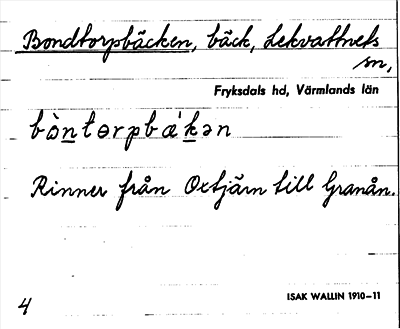 Bondtorpbäcken, bäck, Lekvattnets
sn,
Fryksdals hd, Värmlands län
bòntɵrpbæ'kən
Rinner från Oxtjärn till Granån.
4 ISAK WALLIN 1910–11